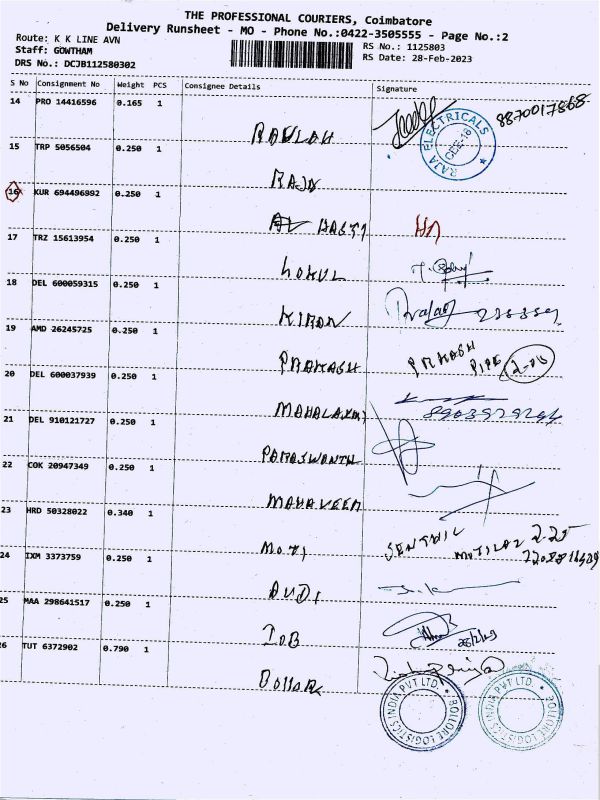 THE PROFESSIONAL COURIERS, Coimbatore
Delivery Runsheet - MO - Phone No.:0422-3505555 - Page No.:2
Route: K K LINE AVN
RS No.: 1125803
Staff: GOWTHAM
RS Date: 28-Feb-2023
DRS No.: DCJB112580302
S No Consignment No Weight PCS Consignee Details Signature
14 PRO 14416596 0.165 1
8870017868
RAJA ELECTRICALS
CBE-16
15 TRP 5056504 0.250 1
RAJA
16 KUR 694496992 0.250 1
HASTI
17 TRZ 15613954 0.250 1
GOKUL
18 DEL 600059315 0.250 1
KIRAN
19 AMD 26245725 0.250 1
PRAKASH PRAKASH PIPE
20 DEL 600037939 0.250 1
MAHALAXMI
21 DEL 910121727 0.250 1
22 COK 20947349 0.250 1
MAHAVEER
23 HRD 50328022 0.340 1
MOTI SENTHIL MOTILAL 2.25
24 IXM 3373759 0.250 1
AUDI
25 MAA 298641517 0.250 1
IOB
26 TUT 6372902 0.790 1
Bollore
BOLLORE LOGISTICS INDIA PVT LTD.
BOLLORE LOGISTICS INDIA PVT LTD.